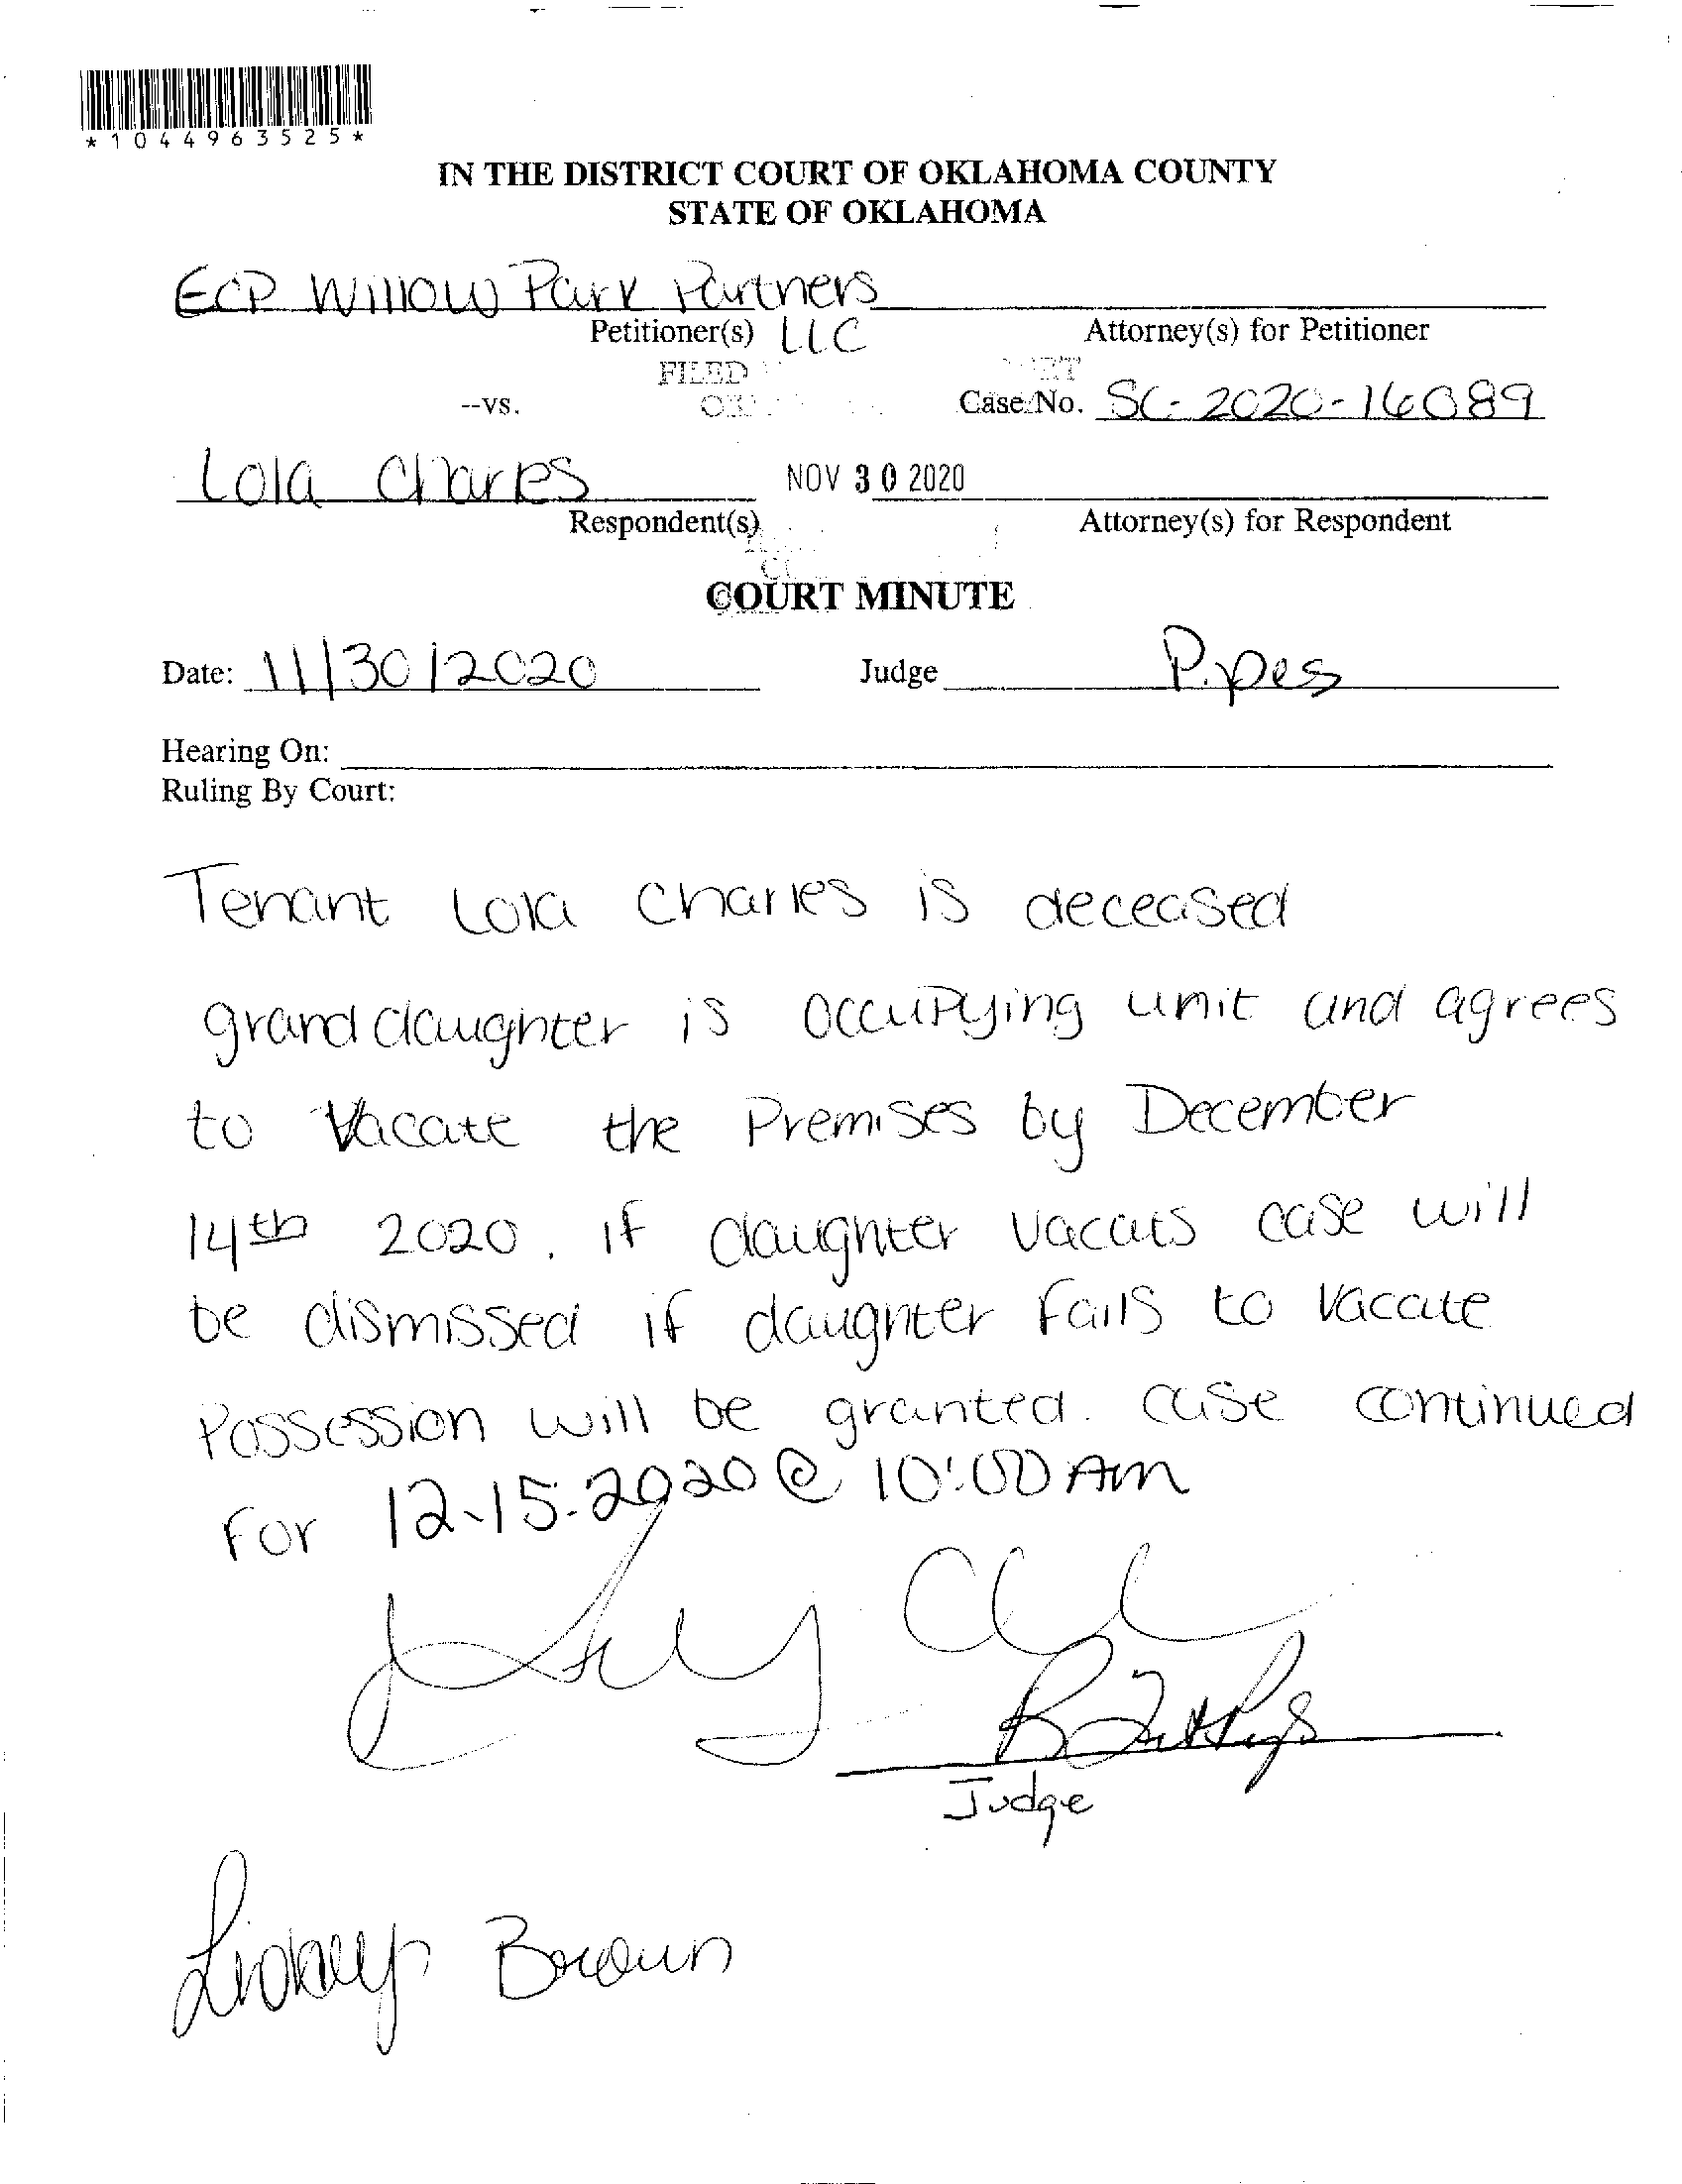 *1044963525*
IN THE DISTRICT COURT OF OKLAHOMA COUNTY
STATE OF OKLAHOMA
ECP Willow Park Partners
Petitioner(s) LLC Attorney(s) for Petitioner
FILED
--vs. Case No. SC-2020-16089
Lola Charles NOV 30 2020
Respondent(s) Attorney(s) for Respondent
COURT MINUTE
Date: 11/30/2020 Judge Pipes
Hearing On:
Ruling By Court:
Tenant Lola Charles is deceased
grand daughter is occupying unit and agrees
to vacate the Premises by December
14th 2020. if daughter vacats case will
be dismissed if daughter fails to vacate
Possession will be granted. case continued
For 12-15-2020 @ 10:00 AM
Judge
Brown